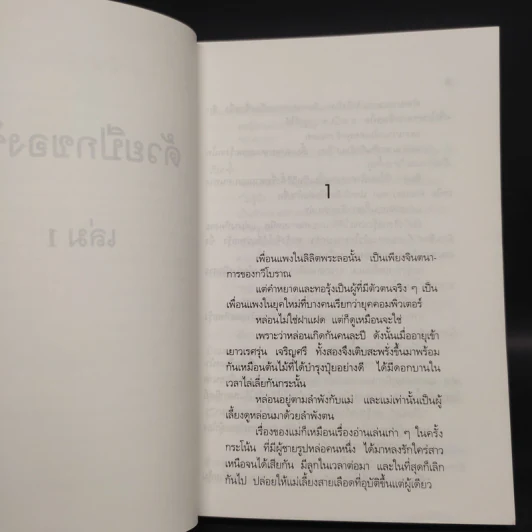 ด้วยปีกของรัก
เล่ม 1
1
เพื่อนแพงในลิลิตพระลอนั้น เป็นเพียงจินตนา-
การของกวีโบราณ
แต่คำหยาดและทอรุ้งเป็นผู้ที่มีตัวตนจริง ๆ เป็น
เพื่อนแพงในยุคใหม่ที่บางคนเรียกว่ายุคคอมพิวเตอร์
หล่อนไม่ใช่ฝาแฝด แต่ก็ดูเหมือนจะใช่
เพราะว่าหล่อนเกิดกันคนละปี ดังนั้นเมื่ออายุเข้า
เยาวเรศรุ่น เจริญศรี ทั้งสองจึงเติบสะพรั่งขึ้นมาพร้อม
กันเหมือนต้นไม้ที่ได้บำรุงปุ๋ยอย่างดี ได้มีดอกบานใน
เวลาไล่เลี่ยกันกระนั้น
หล่อนอยู่ตามลำพังกับแม่ และแม่เท่านั้นเป็นผู้
เลี้ยงดูหล่อนมาด้วยลำพังตน
เรื่องของแม่ก็เหมือนเรื่องอ่านเล่นเก่า ๆ ในครั้ง
กระโน้น ที่มีผู้ชายรูปหล่อคนหนึ่ง ได้มาหลงรักใคร่สาว
เหนือจนได้เสียกัน มีลูกในเวลาต่อมา และในที่สุดก็เลิก
กันไป ปล่อยให้แม่เลี้ยงสายเลือดที่อุบัติขึ้นแต่ผู้เดียว